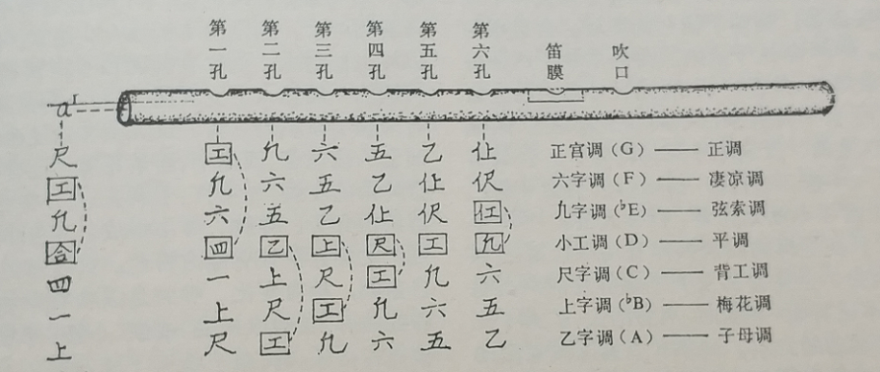 第一孔 第二孔 第三孔 第四孔 第五孔 第六孔 笛膜 吹口
a¹
尺 工 凡 六 五 乙 仩 正宫调(G)——正调
工 凡 六 五 乙 仩 伬 六字调(F)——凄凉调
凡 六 五 乙 仩 伬 仜 凡字调(♭E)——弦索调
合 四 乙 上 尺 工 凡 小工调(D)——平调
四 一 上 尺 工 凡 六 尺字调(C)——背工调
一 上 尺 工 凡 六 五 上字调(♭B)——梅花调
上 尺 工 凡 六 五 乙 乙字调(A)——子母调